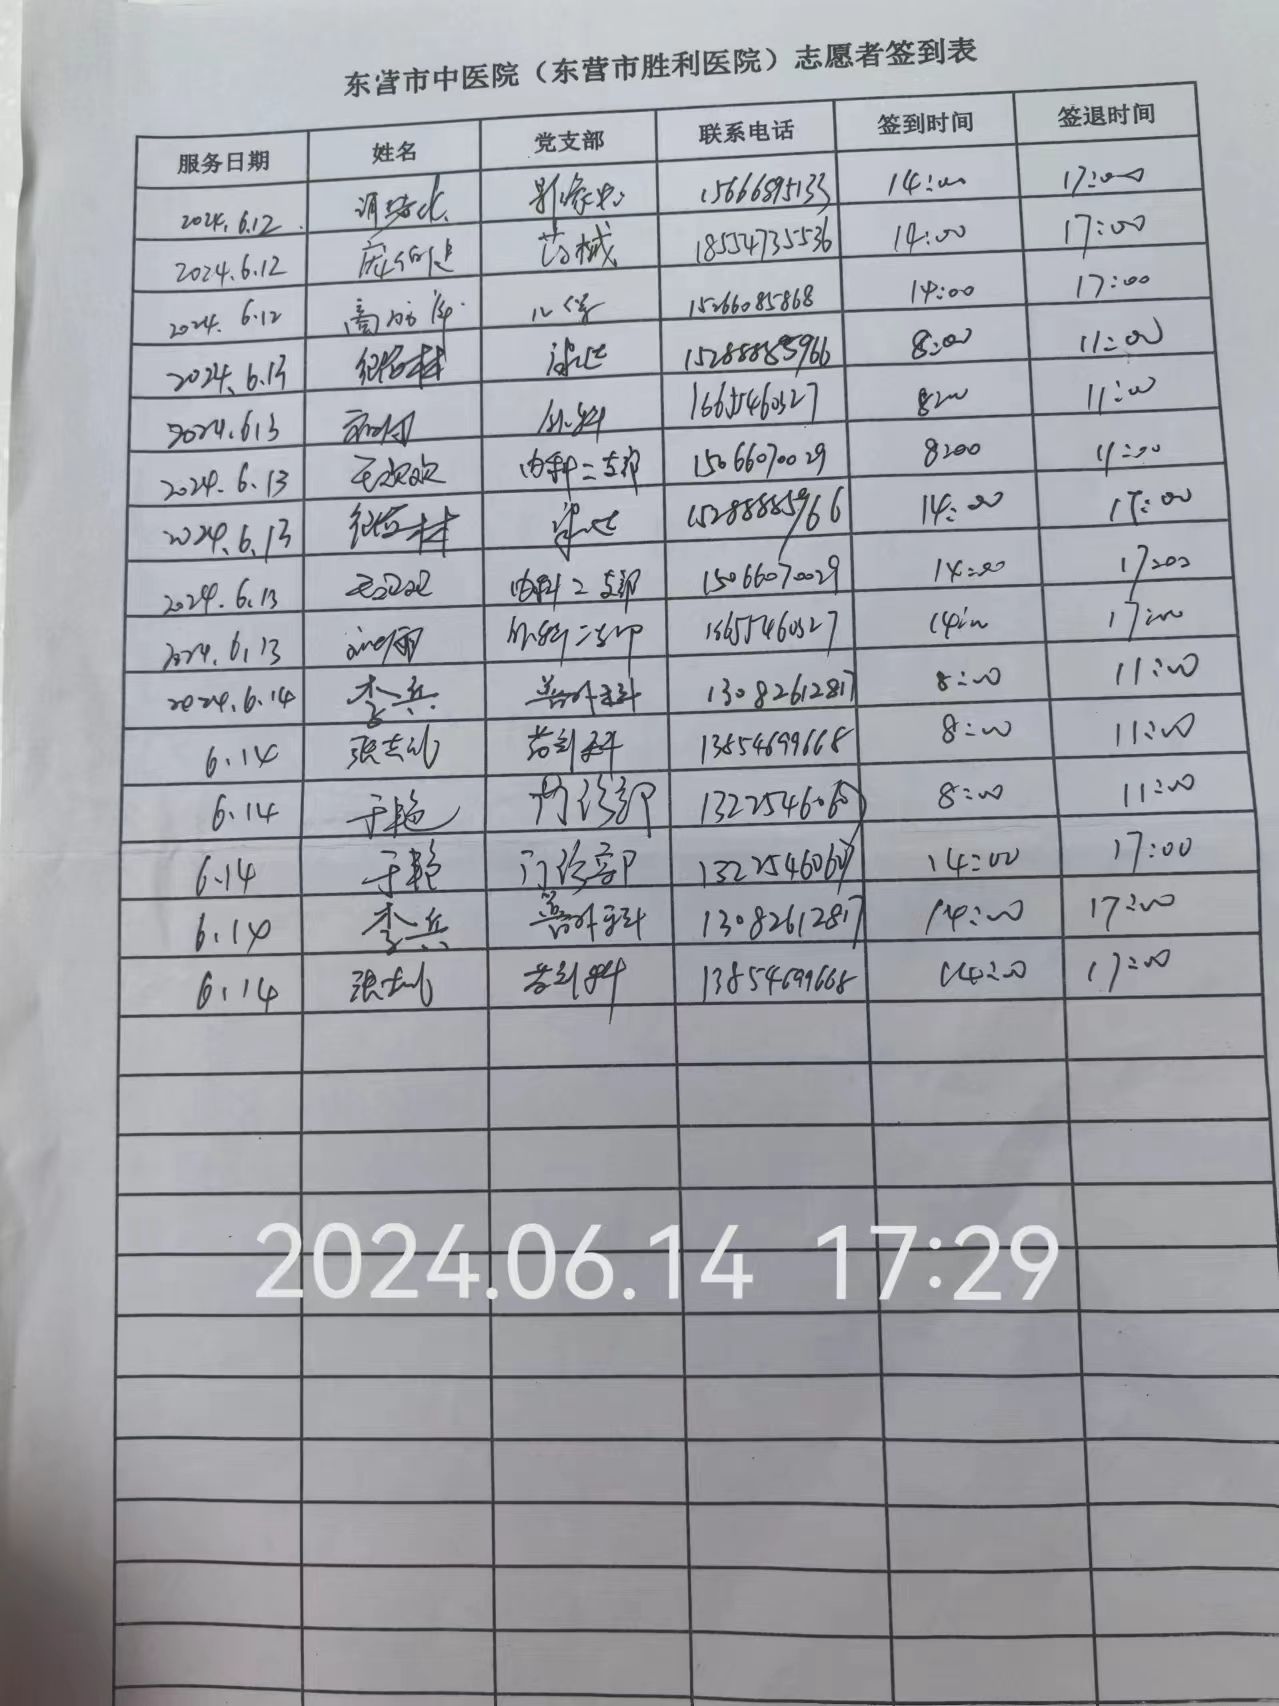 东营市中医院（东营市胜利医院）志愿者签到表
服务日期 姓名 党支部 联系电话 签到时间 签退时间
2024.6.12 影像 15666895133 14:00 17:00
2024.6.12 药械 18554735536 14:00 17:00
2024.6.12 儿 15266085868 14:00 17:00
2024.6.13 15288885966 8:00 11:00
2024.6.13 外科 16655460327 8:00 11:00
2024.6.13 王欢欢 内科二支部 15066070029 8:00 11:00
2024.6.13 15288885966 14:00 17:00
2024.6.13 内科二支部 15066070029 14:00 17:00
2024.6.13 外科二支部 16655460327 14:00 17:00
2024.6.14 李兵 普外科 13082612817 8:00 11:00
6.14 药剂科 13854699668 8:00 11:00
6.14 于艳 门诊部 8:00 11:00
6.14 于艳 门诊部 14:00 17:00
6.14 李兵 普外科 13082612817 14:00 17:00
6.14 药剂科 13854699668 14:00 17:00
2024.06.14 17:29